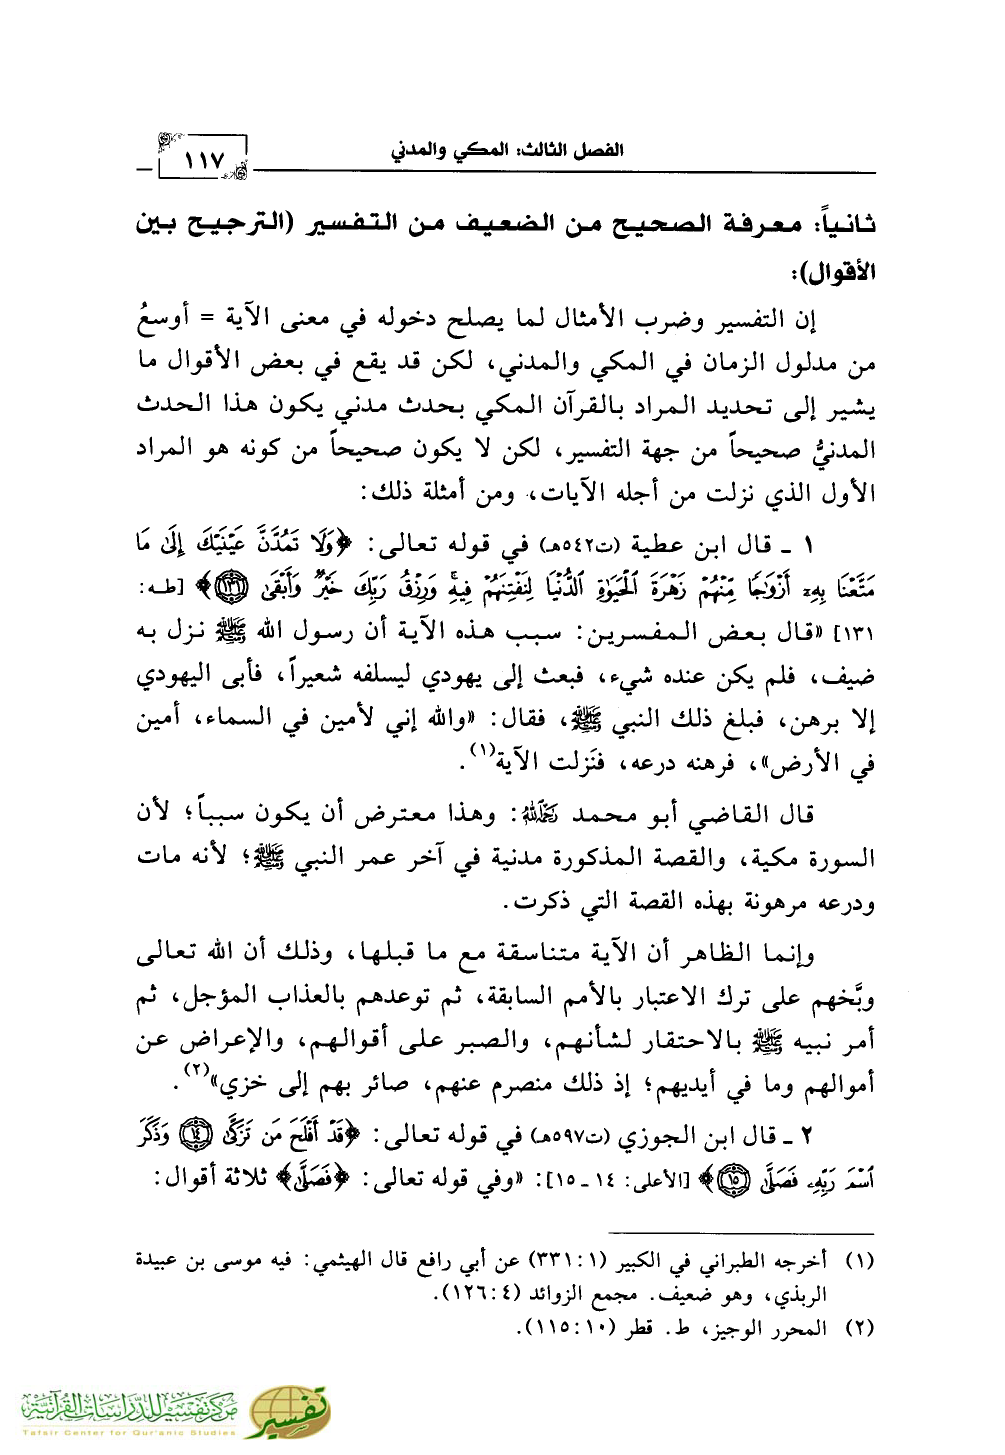 الفصل الثالث: المكي والمدني
١١٧
ثانياً: معرفة الصحيح من الضعيف من التفسير (الترجيح بين
الأقوال):
إن التفسير وضرب الأمثال لما يصلح دخوله في معنى الآية = أوسعُ
من مدلول الزمان في المكي والمدني، لكن قد يقع في بعض الأقوال ما
يشير إلى تحديد المراد بالقرآن المكي بحدث مدني يكون هذا الحدث
المدنيُّ صحيحاً من جهة التفسير، لكن لا يكون صحيحاً من كونه هو المراد
الأول الذي نزلت من أجله الآيات، ومن أمثلة ذلك:
١ ـ قال ابن عطية (ت٥٤٢هـ) في قوله تعالى: ﴿وَلَا تَمُدَّنَّ عَيْنَيْكَ إِلَىٰ مَا
مَتَّعْنَا بِهِۦٓ أَزْوَٰجًا مِّنْهُمْ زَهْرَةَ ٱلْحَيَوٰةِ ٱلدُّنْيَا لِنَفْتِنَهُمْ فِيهِ ۚ وَرِزْقُ رَبِّكَ خَيْرٌ وَأَبْقَىٰ ﴿١٣١﴾﴾ [طـه:
١٣١] «قال بعض المفسرين: سبب هذه الآية أن رسول الله ﷺ نزل به
ضيف، فلم يكن عنده شيء، فبعث إلى يهودي ليسلفه شعيراً، فأبى اليهودي
إلا برهن، فبلغ ذلك النبي ﷺ، فقال: «والله إني لأمين في السماء، أمين
في الأرض»، فرهنه درعه، فنَزلت الآية(١).
قال القاضي أبو محمد رَحِمَهُ اللهُ: وهذا معترض أن يكون سبباً؛ لأن
السورة مكية، والقصة المذكورة مدنية في آخر عمر النبي ﷺ؛ لأنه مات
ودرعه مرهونة بهذه القصة التي ذكرت.
وإنما الظاهر أن الآية متناسقة مع ما قبلها، وذلك أن الله تعالى
وبَّخهم على ترك الاعتبار بالأمم السابقة، ثم توعدهم بالعذاب المؤجل، ثم
أمر نبيه ﷺ بالاحتقار لشأنهم، والصبر على أقوالهم، والإعراض عن
أموالهم وما في أيديهم؛ إذ ذلك منصرم عنهم، صائر بهم إلى خزي»(٢).
٢ ـ قال ابن الجوزي (ت٥٩٧هـ) في قوله تعالى: ﴿قَدْ أَفْلَحَ مَن تَزَكَّىٰ ﴿١٤﴾ وَذَكَرَ
ٱسْمَ رَبِّهِۦ فَصَلَّىٰ ﴿١٥﴾﴾ [الأعلى: ١٤ ـ ١٥]: «وفي قوله تعالى: ﴿فَصَلَّىٰ﴾ ثلاثة أقوال:
(١) أخرجه الطبراني في الكبير (١:٣٣١) عن أبي رافع قال الهيثمي: فيه موسى بن عبيدة
الربذي، وهو ضعيف. مجمع الزوائد (٤:١٢٦).
(٢) المحرر الوجيز، ط. قطر (١٠:١١٥).
مركز تفسير للدراسات القرآنية
Tafsir Center for Qur'anic Studies
تفسير